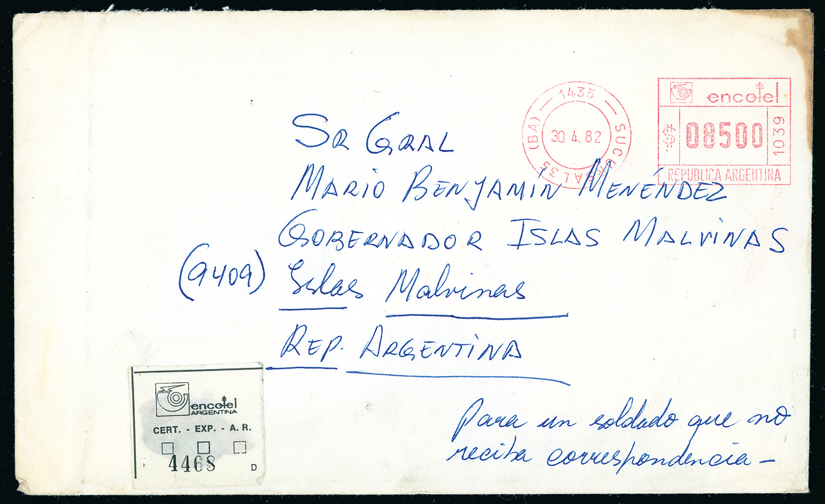 1435
SUCURSAL 35 (BA)
30 4. 82
encotel
08500
1039
REPUBLICA ARGENTINA
SR GRAL
MARIO BENJAMÍN MENÉNDEZ
GOBERNADOR ISLAS MALVINAS
(9409) Islas Malvinas
REP. ARGENTINA
encotel
ARGENTINA
CERT. - EXP. - A. R.
4468 D
para un soldado que no
reciba correspondencia —